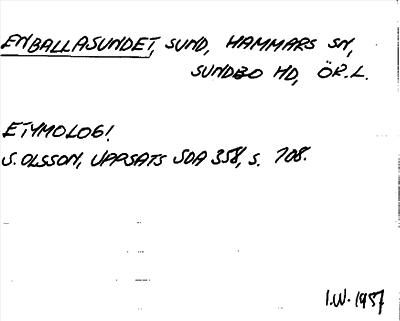 ENBALLASUNDET, SUND, HAMMARS SN,
SUNDBO HD, ÖR.L.
ETYMOLOG!
S. OLSSON, UPPSATS SOA 358, S. 708.
I.W. 1957